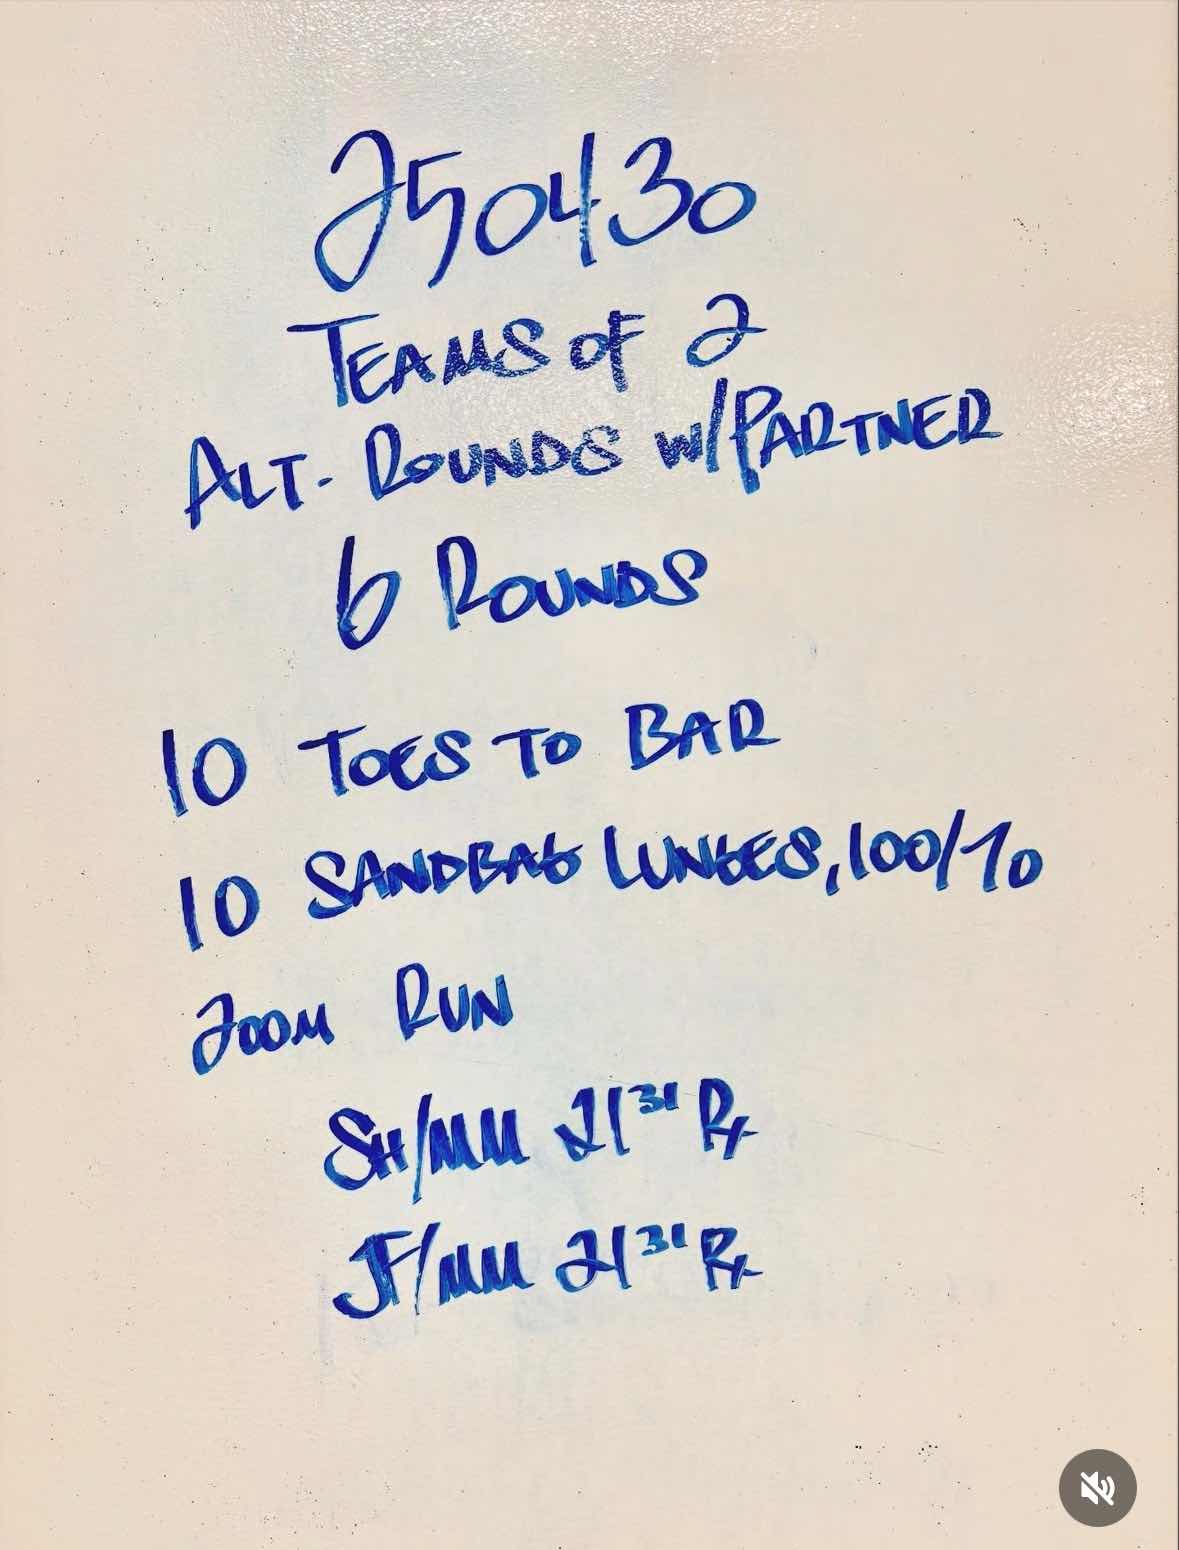 250430
TEAMS OF 2
ALT. ROUNDS W/PARTNER
6 ROUNDS
10 TOES TO BAR
10 SANDBAG LUNGES, 100/70
200M RUN
SH/MM 21³¹ Rx
JF/MM 21³¹ Rx